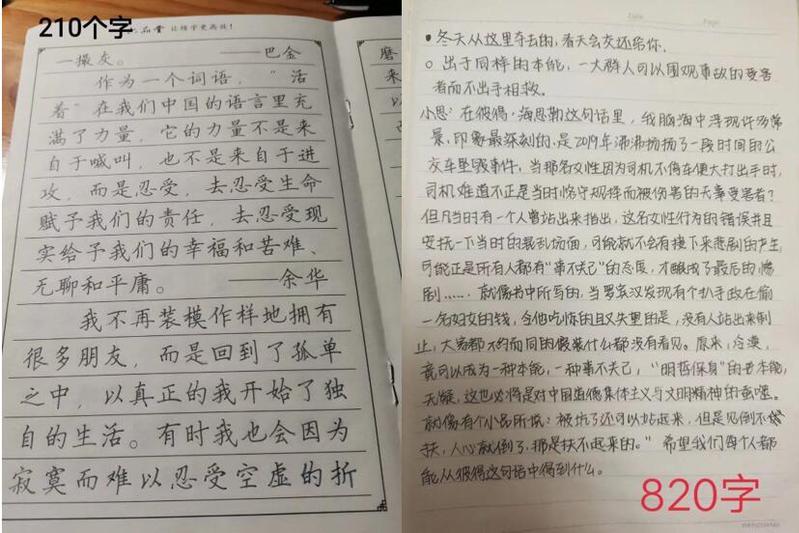 210个字
品堂 让练字更高效!
一撮灰。 ——巴金
作为一个词语，“活
着”在我们中国的语言里充
满了力量，它的力量不是来
自于喊叫，也不是来自于进
攻，而是忍受，去忍受生命
赋予我们的责任，去忍受现
实给予我们的幸福和苦难、
无聊和平庸。 ——余华
我不再装模作样地拥有
很多朋友，而是回到了孤单
之中，以真正的我开始了独
自的生活。有时我也会因为
寂寞而难以忍受空虚的折
磨
来
Date Page
• 冬天从这里夺去的，春天会交还给你.
○ 出于同样的本能，一大群人可以围观事故的受害
者而不出手相救。
小思：在彼得·海思勒这句话里，我脑海中浮现许多情
景，印象最深刻的，是2019年沸沸扬扬了一段时间的公
交车坠毁事件，当那名女性因为司机不停车便大打出手时，
司机难道不正是当时恪守规择而被伤害的无辜受害者？
但凡当时有一个人曾站出来指出，这名女性行为的错误并且
安抚一下当时的混乱场面，可能就不会有接下来悲剧的产生，
可能正是所有人都有“事不关己”的态度，才酿成了最后的惨
剧…… 就像书中所写的，当罗玄汉发现有个扒手正在偷
一名妇女的钱，令他吃惊的且又失望的是，没有人站出来制
止，大家都不约而同的假装什么都没有看见。原来，冷漠，
竟可以成为一种本能，一种事不关己，“明哲保身”的本能，
无疑，这也必将是对中国道德集体主义与文明精神的亵渎。
就像有个小品所说：被坑了还可以站起来，但是见倒不
扶，人心就倒了，那是扶不起来的。” 希望我们每个人都
能从彼得这句话中得到什么。
820字